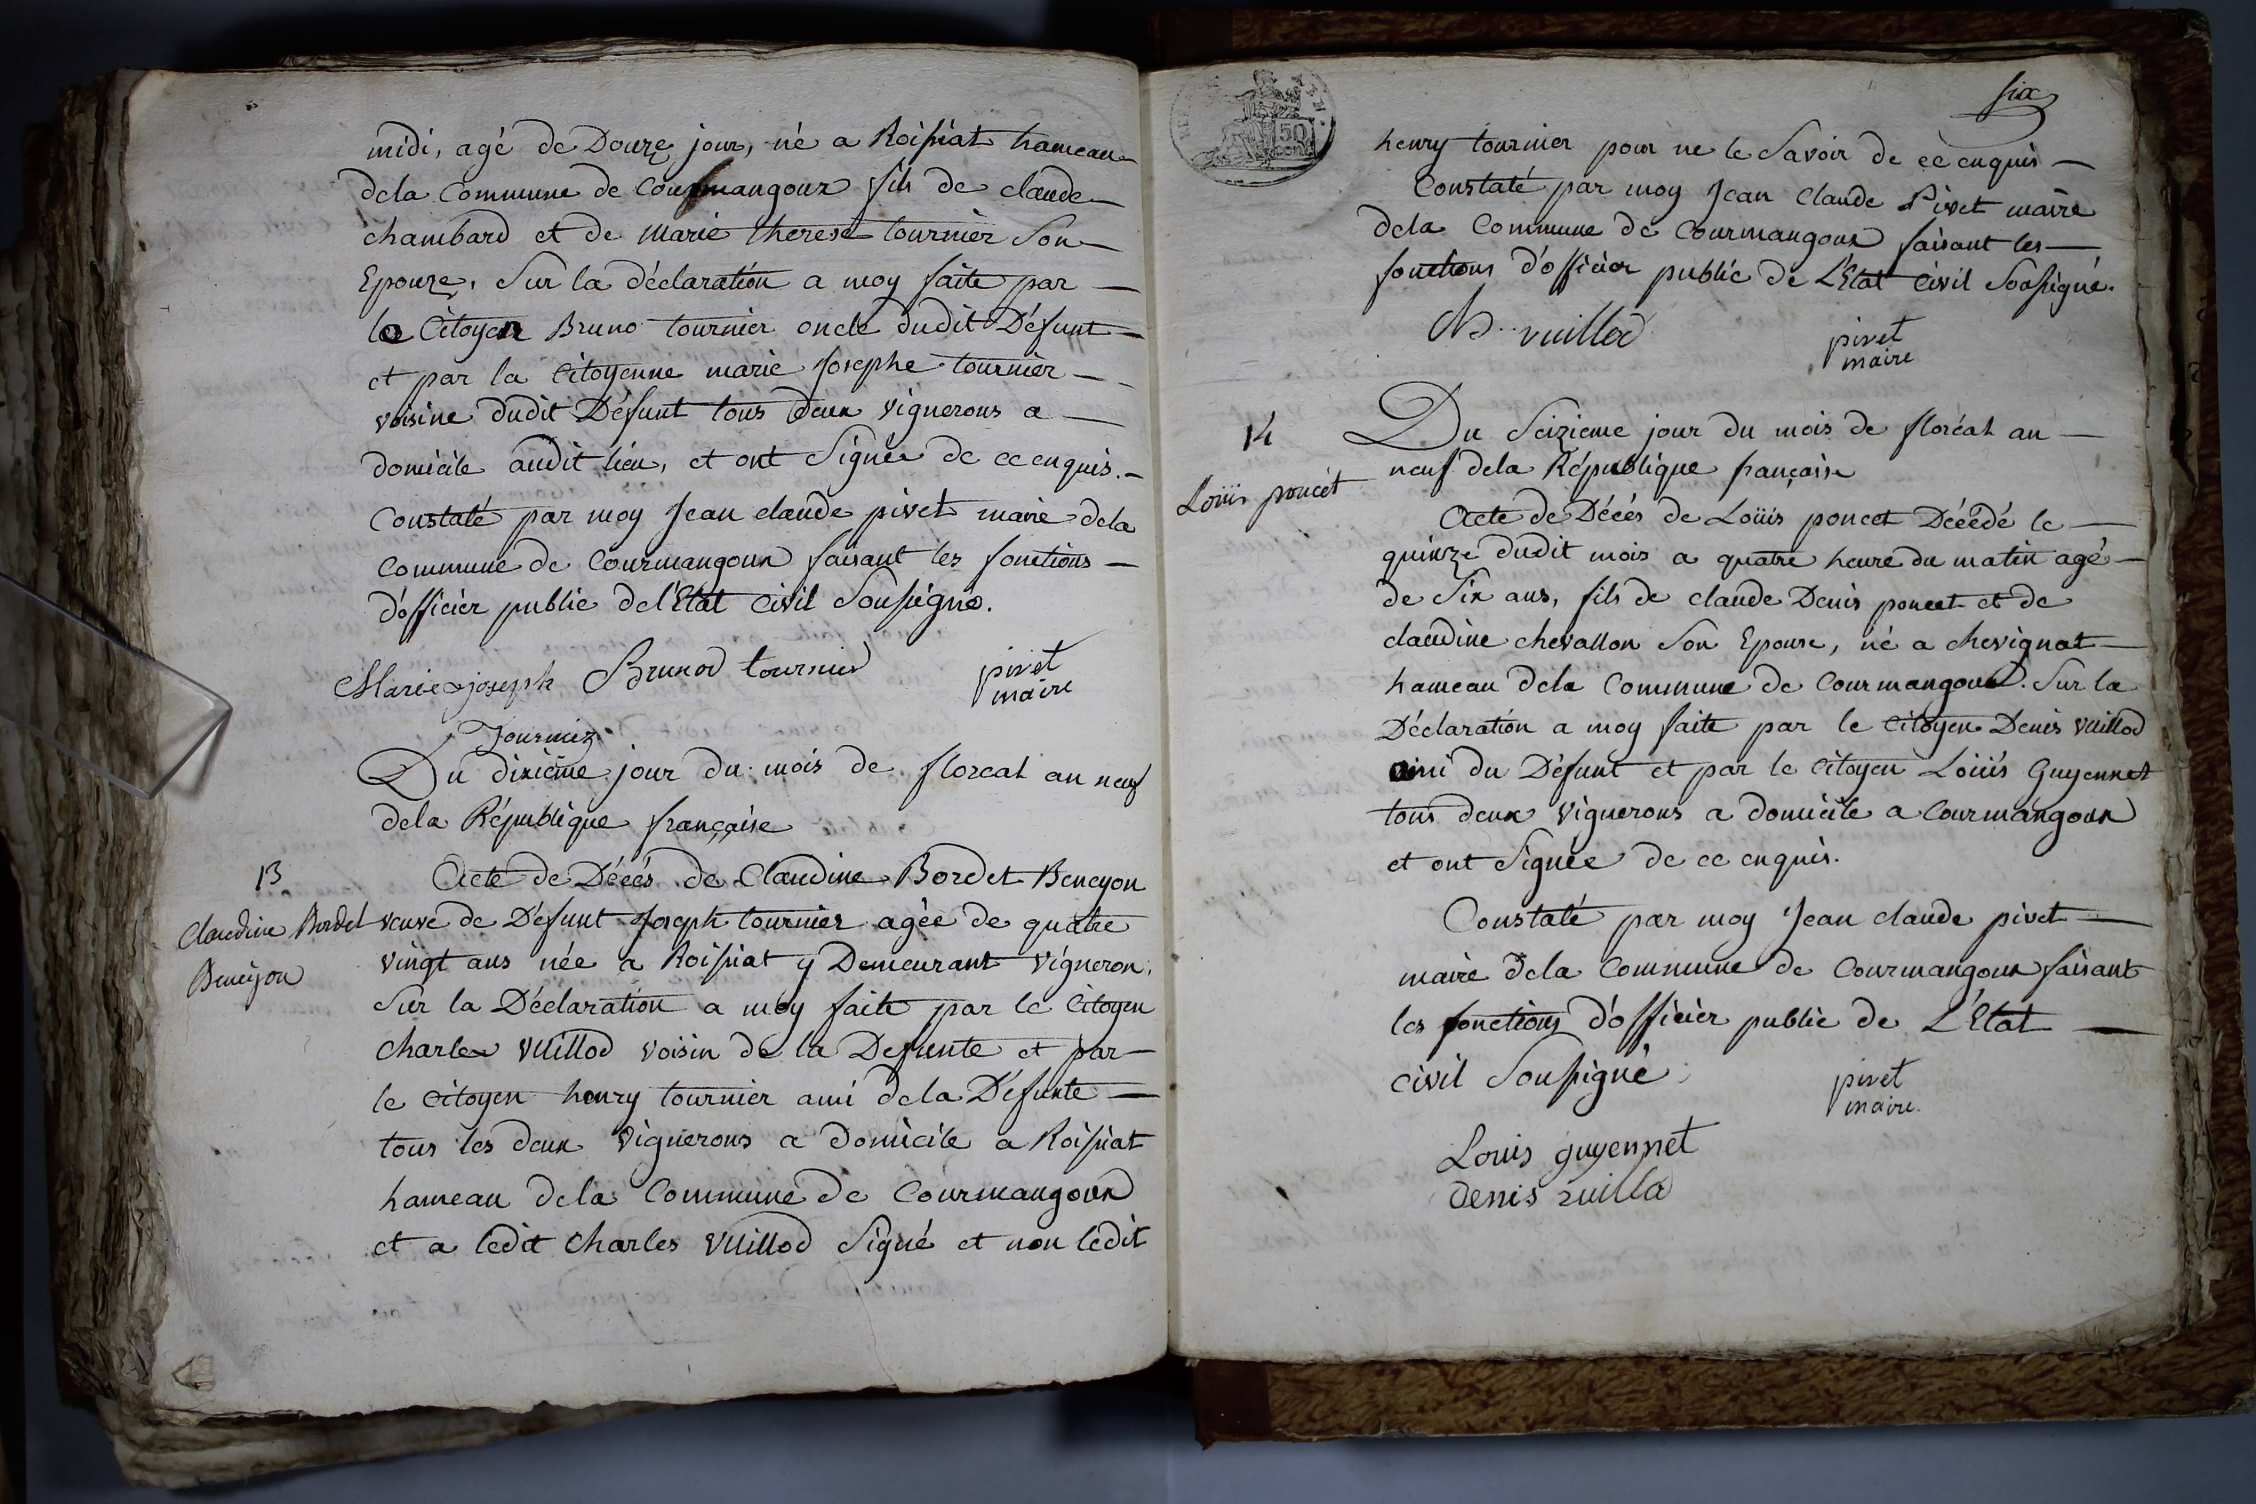 midi, agé de Douze jour, né a Roissiat hameau
dela Commune de Courmangoux fils de claude
chambard et de Marie therese tournier Son
Epouze, Sur la déclaration a moy faite par
le Citoyen Bruno tournier oncle dudit Défunt
et par la Citoyenne marie Josephe tournier
voisine dudit Défunt tous deux vignerons a
domicile audit lieu, et ont Signée de ce enquis.
Constaté par moy Jean claude pivet maire dela
Commune de Courmangoux faisant les fonctions
d'officier public de l'Etat Civil Soussigné.
Marie joseph Brunod tournié pivet
maire
Tournier
Du dixieme jour du mois de floreal an neuf
dela République française
13
Acte de Décés de Claudine Bordet Beneyon
Claudine Bordet
Beneyon
veuve de Défunt Joseph tournier agée de quatre
vingt ans née a Roissiat y Demeurant vigneron,
Sur la Déclaration a moy faite par le Citoyen
Charles Vuillod voisin de la Defunte et par
le Citoyen henry tournier ami dela Défunte
tous les deux Vignerons a Domicile a Roissiat
hameau dela Commune de Courmangoux
et a ledit Charles Vuillod Signé et non ledit
six
50
henry tournier pour ne le Savoir de ce enquis
Constaté par moy Jean Claude Pivet maire
dela Commune de Courmangoux faisant les
fonctions d'officier public de L'Etat Civil Sousigné.
Ch vuillod pivet
maire
14
Louis poncet
Du Seizieme jour du mois de floréal an
neuf dela République française
Acte de Décés de Louis poncet Décédé le
quinze dudit mois a quatre heure du matin agé
de Six ans, fils de claude Denis poncet et de
claudine chevallon Son Epouse, né a chevignat
hameau dela Commune de Courmangoux. Sur la
Déclaration a moy faite par le Citoyen Denis Vuillod
ami du Défunt et par le Citoyen Louis Guyennet
tous deux Vignerons a domicile a Courmangoux
et ont Signée de ce enquis.
Constaté par moy Jean claude pivet
maire dela Commune de Courmangoux faisant
les fonctions d'officier public de L'Etat
civil Soussigné pivet
maire.
Louis guyennet
denis vuilla